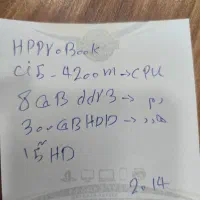 HP ProBook
Ci5-4200m→CPU
8GB ddr3→رم
300GBHDD→هارد
15" HD
2014